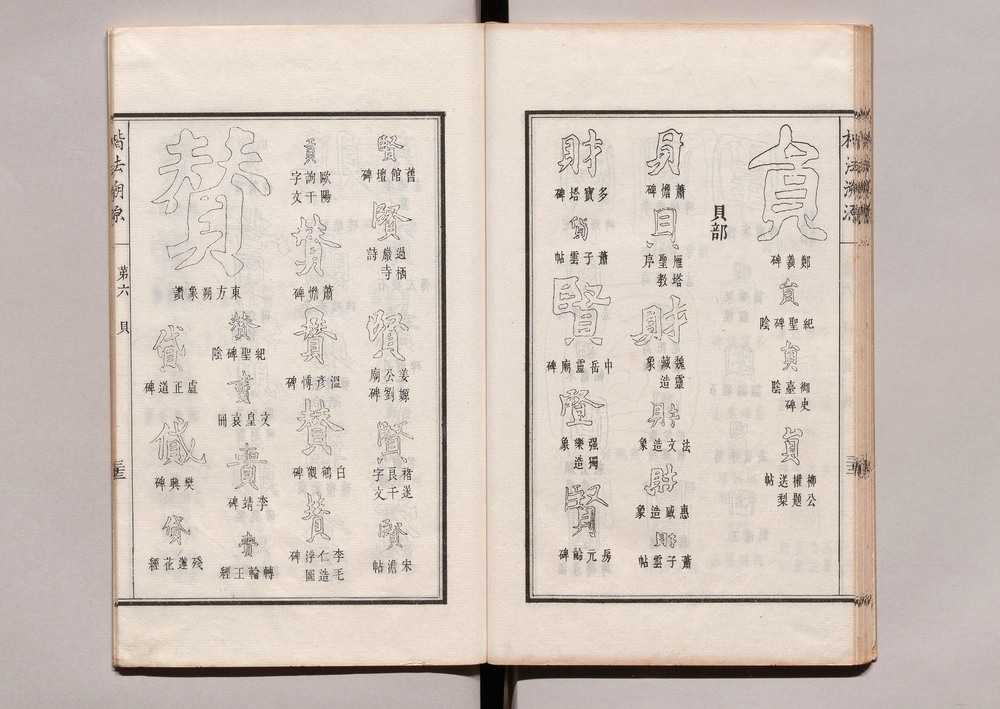 貟
鄭義碑
貟
紀聖碑陰
貟
御史臺碑陰
貟
柳公權題送梨帖
貝部
貝
蕭憺碑
貝
雁塔聖教序
財
魏靈藏造象
財
法文造象
財
惠感造象
財
蕭子雲帖
財
多寶塔碑
貨
蕭子雲帖
賢
中岳靈廟碑
賢
强獨樂造象
賢
房元齡碑
賢
舊館壇碑
賢
過栖巖寺詩
賢
姜嫄公劉廟碑
賢
褚遂良千字文
賢
宋儋帖
貢
歐陽詢千字文
賛
蕭憺碑
賛
溫彥博碑
賛
白鶴觀碑
賛
李毛仁造浮圖碑
賛
東方朔象讚
賛
紀聖碑陰
文皇哀冊
李靖碑
轉輪王經
貸
盧正道碑
貸
樊興碑
貸
殘蓮花經
楷法溯源
第六
貝